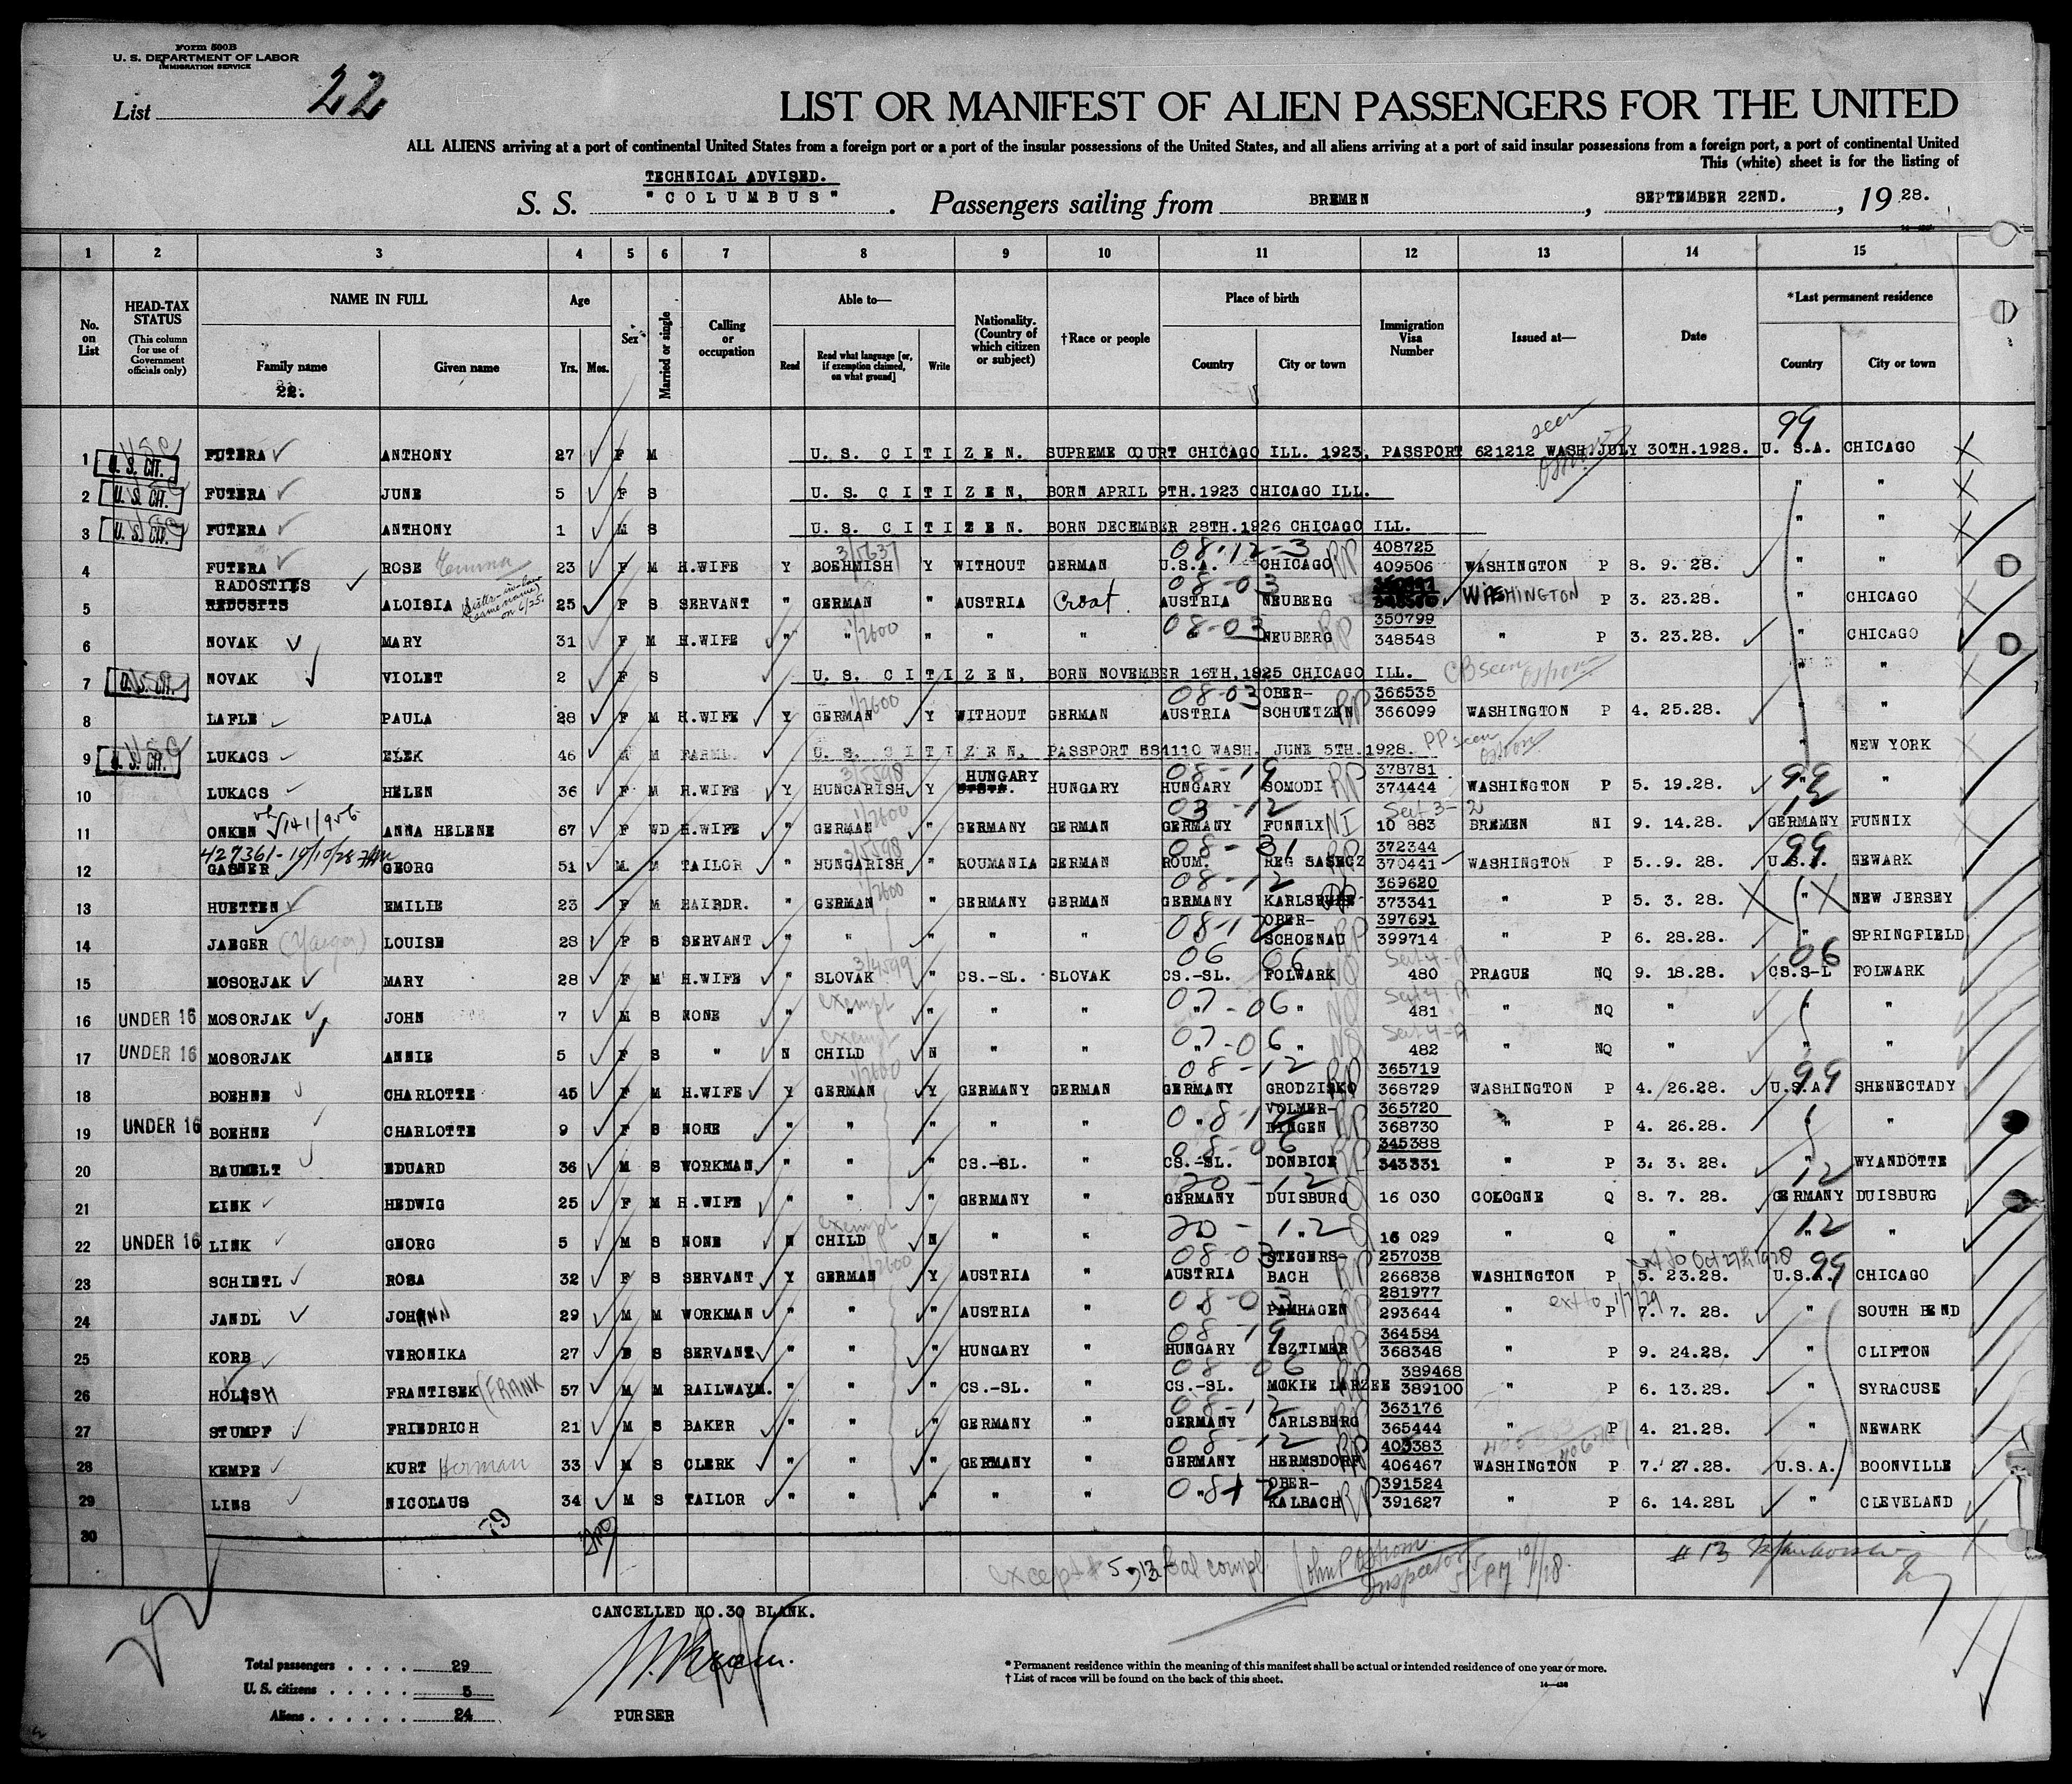 Form 500B
U. S. DEPARTMENT OF LABOR
IMMIGRATION SERVICE
List 22
LIST OR MANIFEST OF ALIEN PASSENGERS FOR THE UNITED
ALL ALIENS arriving at a port of continental United States from a foreign port or a port of the insular possessions of the United States, and all aliens arriving at a port of said insular possessions from a foreign port, a port of continental United
This (white) sheet is for the listing of
TECHNICAL ADVISED.
S. S. "COLUMBUS". Passengers sailing from BREMEN, SEPTEMBER 22ND., 1928.
1 2 3 4 5 6 7 8 9 10 11 12 13 14 15
No. on List
HEAD-TAX STATUS (This column for use of Government officials only)
NAME IN FULL Family name Given name
22.
Age Yrs. Mos.
Sex
Married or single
Calling or occupation
Able to— Read Read what language [or, if exemption claimed, on what ground] Write
Nationality. (Country of which citizen or subject)
†Race or people
Place of birth Country City or town
Immigration Visa Number
Issued at—
Date
*Last permanent residence Country City or town
1 U. S. CIT. FUTERA ANTHONY 27 F M U. S. CITIZEN. SUPREME COURT CHICAGO ILL. 1923, PASSPORT 621212 WASH. JULY 30TH.1928. seen 99 U. S.A. CHICAGO
2 U. S. CIT. FUTERA JUNE 5 F S U. S. CITIZEN, BORN APRIL 9TH.1923 CHICAGO ILL. " "
3 U. S. CIT. FUTERA ANTHONY 1 M S U. S. CITIZEN. BORN DECEMBER 28TH.1926 CHICAGO ILL. " "
4 FUTERA ROSE Emma 23 F M H.WIFE Y BOEHMISH 3/5637 Y WITHOUT GERMAN 08-12-3 U.S.A. CHICAGO RP 408725 409506 WASHINGTON P 8. 9. 28. " "
5 RADOSTITS ALOISIA 25 F S SERVANT " GERMAN " AUSTRIA Croat. 08-03 AUSTRIA NEUBERG WASHINGTON P 3. 23.28. " CHICAGO
6 NOVAK MARY 31 F M H.WIFE " " 1/2600 " " " 08-03 NEUBERG RP 350799 348548 " P 3. 23.28. " CHICAGO
7 U. S. CIT. NOVAK VIOLET 2 F S U. S. CITIZEN, BORN NOVEMBER 16TH,1925 CHICAGO ILL. CB seen "
8 LAFLE PAULA 28 F M H.WIFE Y GERMAN 1/2600 Y WITHOUT GERMAN 08-03 AUSTRIA OBER- SCHUETZEN RP 366535 366099 WASHINGTON P 4. 25.28. " "
9 U. S. CIT. LUKACS ELEK 46 M M U. S. CITIZEN, PASSPORT 584110 WASH. JUNE 5TH.1928. PP seen " NEW YORK
10 LUKACS HELEN 36 F M H.WIFE Y HUNGARISH 3/5598 Y HUNGARY HUNGARY 08-19 HUNGARY SOMODI RP 378781 374444 WASHINGTON P 5. 19.28. 99 " "
11 ONKEN ANNA HELENE 67 F WD H.WIFE " GERMAN 1/2600 " GERMANY GERMAN 03-12 GERMANY FUNNIX NI Sect 3-2 10 883 BREMEN NI 9. 14.28. 12 GERMANY FUNNIX
427361-10/10/28
12 GASNER GEORG 51 M M TAILOR " HUNGARISH 3/5598 " ROUMANIA GERMAN 08-31 ROUM. REG SASECZ RP 372344 370441 WASHINGTON P 5..9. 28. 99 U.S.A. NEWARK
13 HUETTEN EMILIE 23 F M HAIRDR. " GERMAN 1/2600 " GERMANY GERMAN 08-12 GERMANY KARLSRUHE RP 369620 373341 " P 5. 3. 28. X " X NEW JERSEY
14 JAEGER (Yaeger) LOUISE 28 F S SERVANT " " " " " 08-12 OBER- SCHOENAU RP 397691 399714 " P 6. 28.28. " SPRINGFIELD
15 MOSORJAK MARY 28 F M H.WIFE " SLOVAK 3/4599 " CS.-SL. SLOVAK 06 06 CS.-SL. FOLWARK NQ Sect 4-A 480 PRAGUE NQ 9. 18.28. 06 CS.S-L FOLWARK
16 UNDER 16 MOSORJAK JOHN 7 M S NONE " exempt " " " " 07-06 " " NQ Sect 4-A 481 " NQ " " "
17 UNDER 16 MOSORJAK ANNIE 5 F S " N exempt CHILD N " " 07-06 " " NQ Sect 4-A 482 " NQ " " "
18 BOEHNE CHARLOTTE 45 F M H.WIFE Y GERMAN 1/2600 Y GERMANY GERMAN 08-12 GERMANY GRODZISKO RP 365719 368729 WASHINGTON P 4. 26.28. 99 U.S.A. SHENECTADY
19 UNDER 16 BOEHNE CHARLOTTE 9 F S NONE " " " " " 08-12 VOLMER- DINGEN RP 365720 368730 " P 4. 26.28. "
20 BAUMELT EDUARD 36 M S WORKMAN " " " CS.-SL. " 08-06 CS.-SL. DONBICE RP 345388 343331 " P 3. 3. 28. " WYANDOTTE
21 LINK HEDWIG 25 F M H.WIFE " " " GERMANY " 20-12 GERMANY DUISBURG Q 16 030 COLOGNE Q 8. 7. 28. 12 GERMANY DUISBURG
22 UNDER 16 LINK GEORG 5 M S NONE N exempt CHILD N " " 20-12 " Q 16 029 " Q " 12 " "
23 SCHIETL ROSA 32 F S SERVANT Y GERMAN 1/2600 Y AUSTRIA " 08-03 AUSTRIA STEGERS- BACH RP 257038 266838 WASHINGTON P ext to Oct 27th 1928 5. 23.28. 99 U.S.A. CHICAGO
24 JANDL JOHANN 29 M M WORKMAN " " " AUSTRIA " 08-03 " PAMHAGEN RP 281977 293644 " ext to 1/7/29 P 7. 7. 28. " SOUTH BEND
25 KORB VERONIKA 27 S SERVANT " " " HUNGARY " 08-19 HUNGARY ISZTIMER RP 364584 368348 " P 9. 24.28. " CLIFTON
26 HOLISH FRANTISEK (FRANK 57 M M RAILWAYM. " " " CS.-SL. " 08-06 CS.-SL. MOKIE LARZEE RP 389468 389100 " P 6. 13.28. " SYRACUSE
27 STUMPF FRIEDRICH 21 M S BAKER " " " GERMANY " 08-12 GERMANY CARLSBERG RP 363176 365444 " P 4. 21.28. " NEWARK
28 KEMPE KURT Herman 33 M S CLERK " " " GERMANY " 08-12 GERMANY HERMSDORF RP 403383 406467 WASHINGTON P 7. 27.28. U.S.A. BOONVILLE
29 LINS NICOLAUS 34 M S TAILOR " " " " " 08-12 " OBER- KALBACH RP 391524 391627 " P 6. 14.28L " CLEVELAND
30
79
except # 5 & 13 John P Ostrom Inspector # 13
CANCELLED NO.30 BLANK.
PURSER
Total passengers . . . . 29
U. S. citizens . . . . . 5
Aliens . . . . . . 24
* Permanent residence within the meaning of this manifest shall be actual or intended residence of one year or more.
† List of races will be found on the back of this sheet.